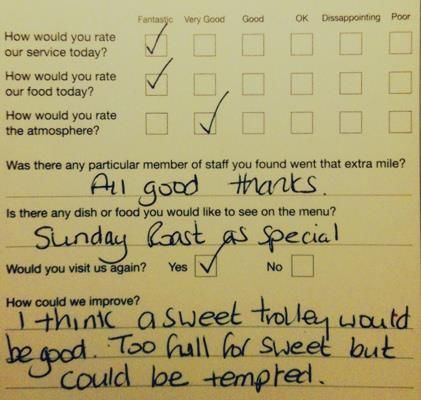 Fantastic Very Good Good OK Dissappointing Poor
How would you rate
our service today?
How would you rate
our food today?
How would you rate
the atmosphere?
Was there any particular member of staff you found went that extra mile?
All good thanks.
Is there any dish or food you would like to see on the menu?
Sunday Roast as special
Would you visit us again? Yes No
How could we improve?
I think a sweet trolley would
be good. Too full for sweet but
could be tempted.